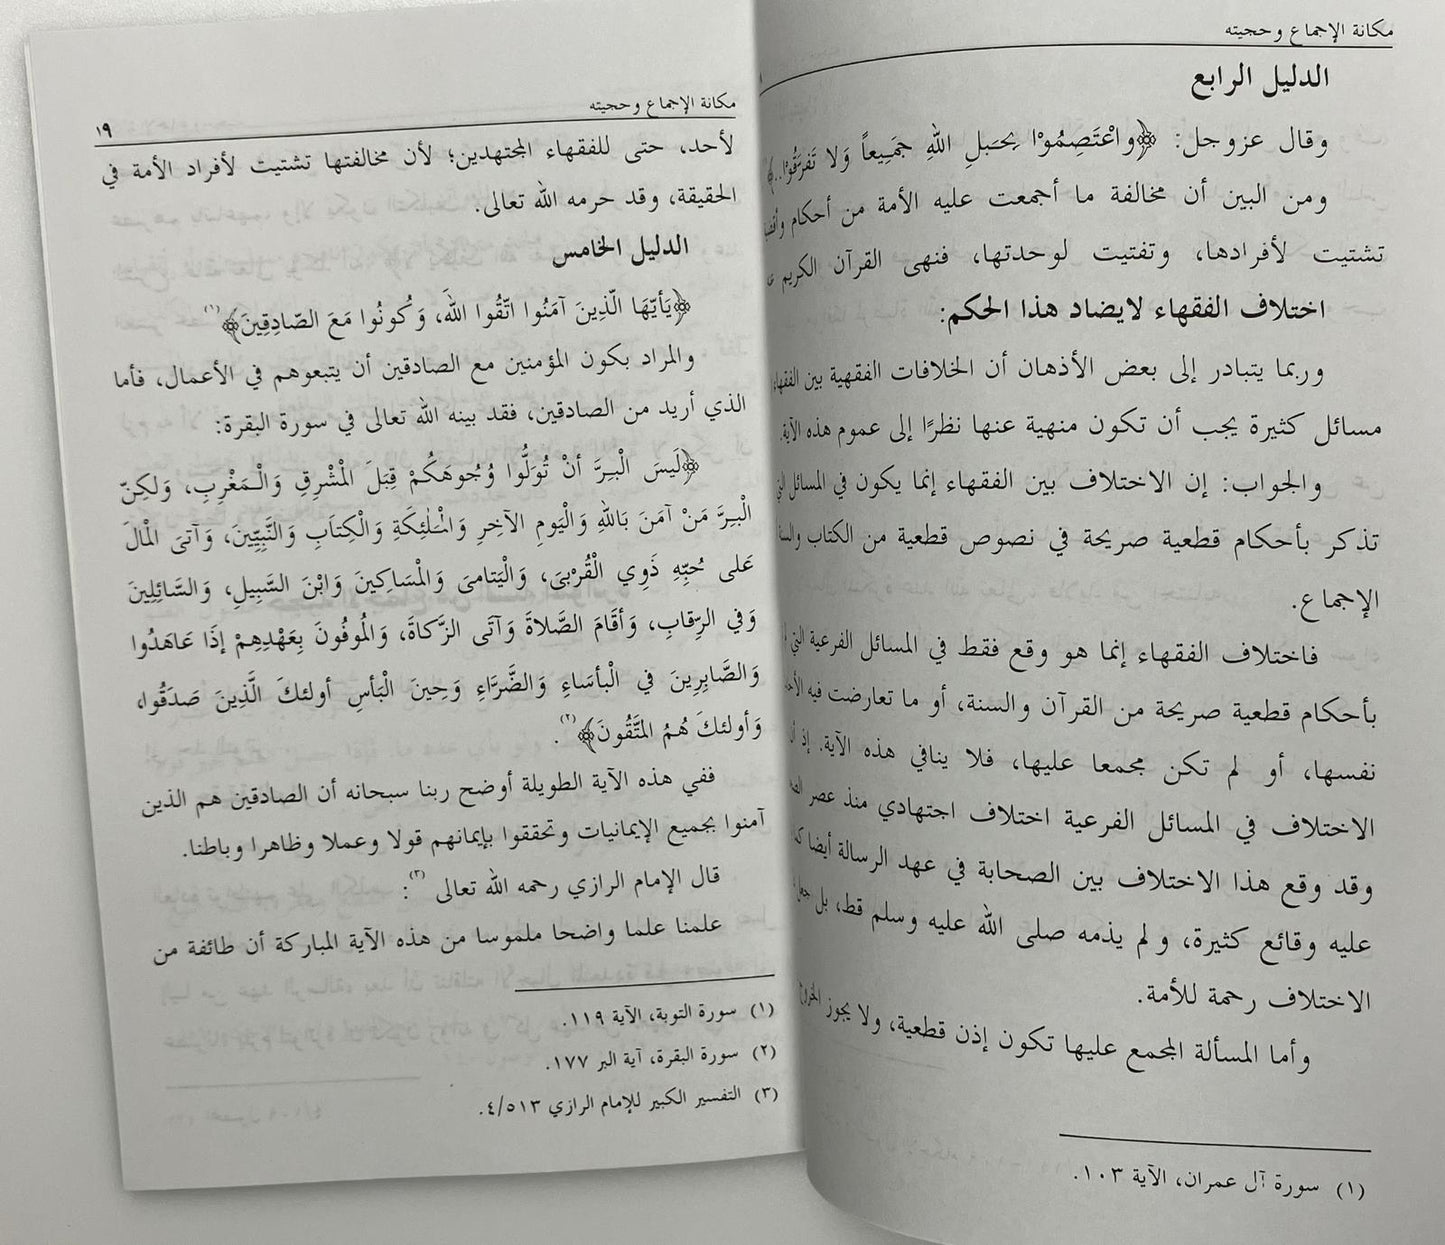 مكانة الإجماع وحجيته
الدليل الرابع
وقال عزوجل: ﴿واعْتَصِمُوْا بِحَبلِ اللهِ جَمَـِيعاً وَلا تَفرَّقُوْا..﴾
ومن البين أن مخالفة ما أجمعت عليه الأمة من أحكام
تشتيت لأفرادها، وتفتيت لوحدتها، فنهى القرآن الكريم
اختلاف الفقهاء لايضاد هذا الحكم:
وربما يتبادر إلى بعض الأذهان أن الخلافات الفقهية بين
مسائل كثيرة يجب أن تكون منهية عنها نظرًا إلى عموم هذه الآية.
والجواب: إن الاختلاف بين الفقهاء إنما يكون في المسائل
تذكر بأحكام قطعية صريحة في نصوص قطعية من الكتاب
الإجماع.
فاختلاف الفقهاء إنما هو وقع فقط في المسائل الفرعية التي
بأحكام قطعية صريحة من القرآن والسنة، أو ما تعارضت فيه
نفسها، أو لم تكن مجمعا عليها، فلا ينافي هذه الآية. إذ
الاختلاف في المسائل الفرعية اختلاف اجتهادي منذ عصر
وقد وقع هذا الاختلاف بين الصحابة في عهد الرسالة أيضا
عليه وقائع كثيرة، ولم يذمه صلى الله عليه وسلم قط، بل
الاختلاف رحمة للأمة.
وأما المسألة المجمع عليها تكون إذن قطعية، ولا يجوز
(١) سورة آل عمران، الآية ١٠٣.
مكانة الإجماع وحجيته ١٩
لأحد، حتى للفقهاء المجتهدين؛ لأن مخالفتها تشتيت لأفراد الأمة في
الحقيقة، وقد حرمه الله تعالى.
الدليل الخامس
﴿يَأيّهَا الّذِينَ آمَنُوا اتّقُوا اللهَ، وَكُونُوا مَعَ الصّادِقِينَ﴾(١)
والمراد بكون المؤمنين مع الصادقين أن يتبعوهم في الأعمال، فأما
الذي أريد من الصادقين، فقد بينه الله تعالى في سورة البقرة:
﴿لَيسَ الْبِـرَّ أنْ تُوَلُّوا وُجُوهَكُمْ قِبَلَ الْمْشْرِقِ وَالْـمَغْرِبِ، وَلكِنّ
الْبِـرَّ مَنْ آمَنَ بَاللهِ وَالْيَومِ الآخِرِ وَالْمَـلٰئِكَةِ وَالْكِتاَبِ وَالنَّبِيِّينَ، وَآتىَ الْمْالَ
عَلى حُبِّهِ ذَوِي الْقُرْبىَ، وَالْيَتامىَ وَالْمْسَاكِينَ وَابْنَ السَّبِيلِ، وَالسَّائِلِينَ
وَفي الرِّقابِ، وَأقَامَ الصَّلاةَ وَآتَى الزَّكاةَ، وَالُموفُونَ بِعَهْدِهِمْ إذَا عَاهَدُوا
وَالصَّابِرِينَ في الْبأسَاءِ وَالضَّرَّاءِ وَحِينَ الْبَأسِ أولئكَ الَّذِينَ صَدَقُوا،
وَأولئكَ هُمُ المتَّقُونَ﴾(٢).
ففي هذه الآية الطويلة أوضح ربنا سبحانه أن الصادقين هم الذين
آمنوا بجميع الإيمانيات وتحققوا بإيمانهم قولا وعملا وظاهرا وباطنا.
قال الإمام الرازي رحمه الله تعالى (٣):
علمنا علما واضحا ملموسا من هذه الآية المباركة أن طائفة من
(١) سورة التوبة، الآية ١١٩.
(٢) سورة البقرة، آية البر ١٧٧.
(٣) التفسير الكبير للإمام الرازي ٤/٥١٣.